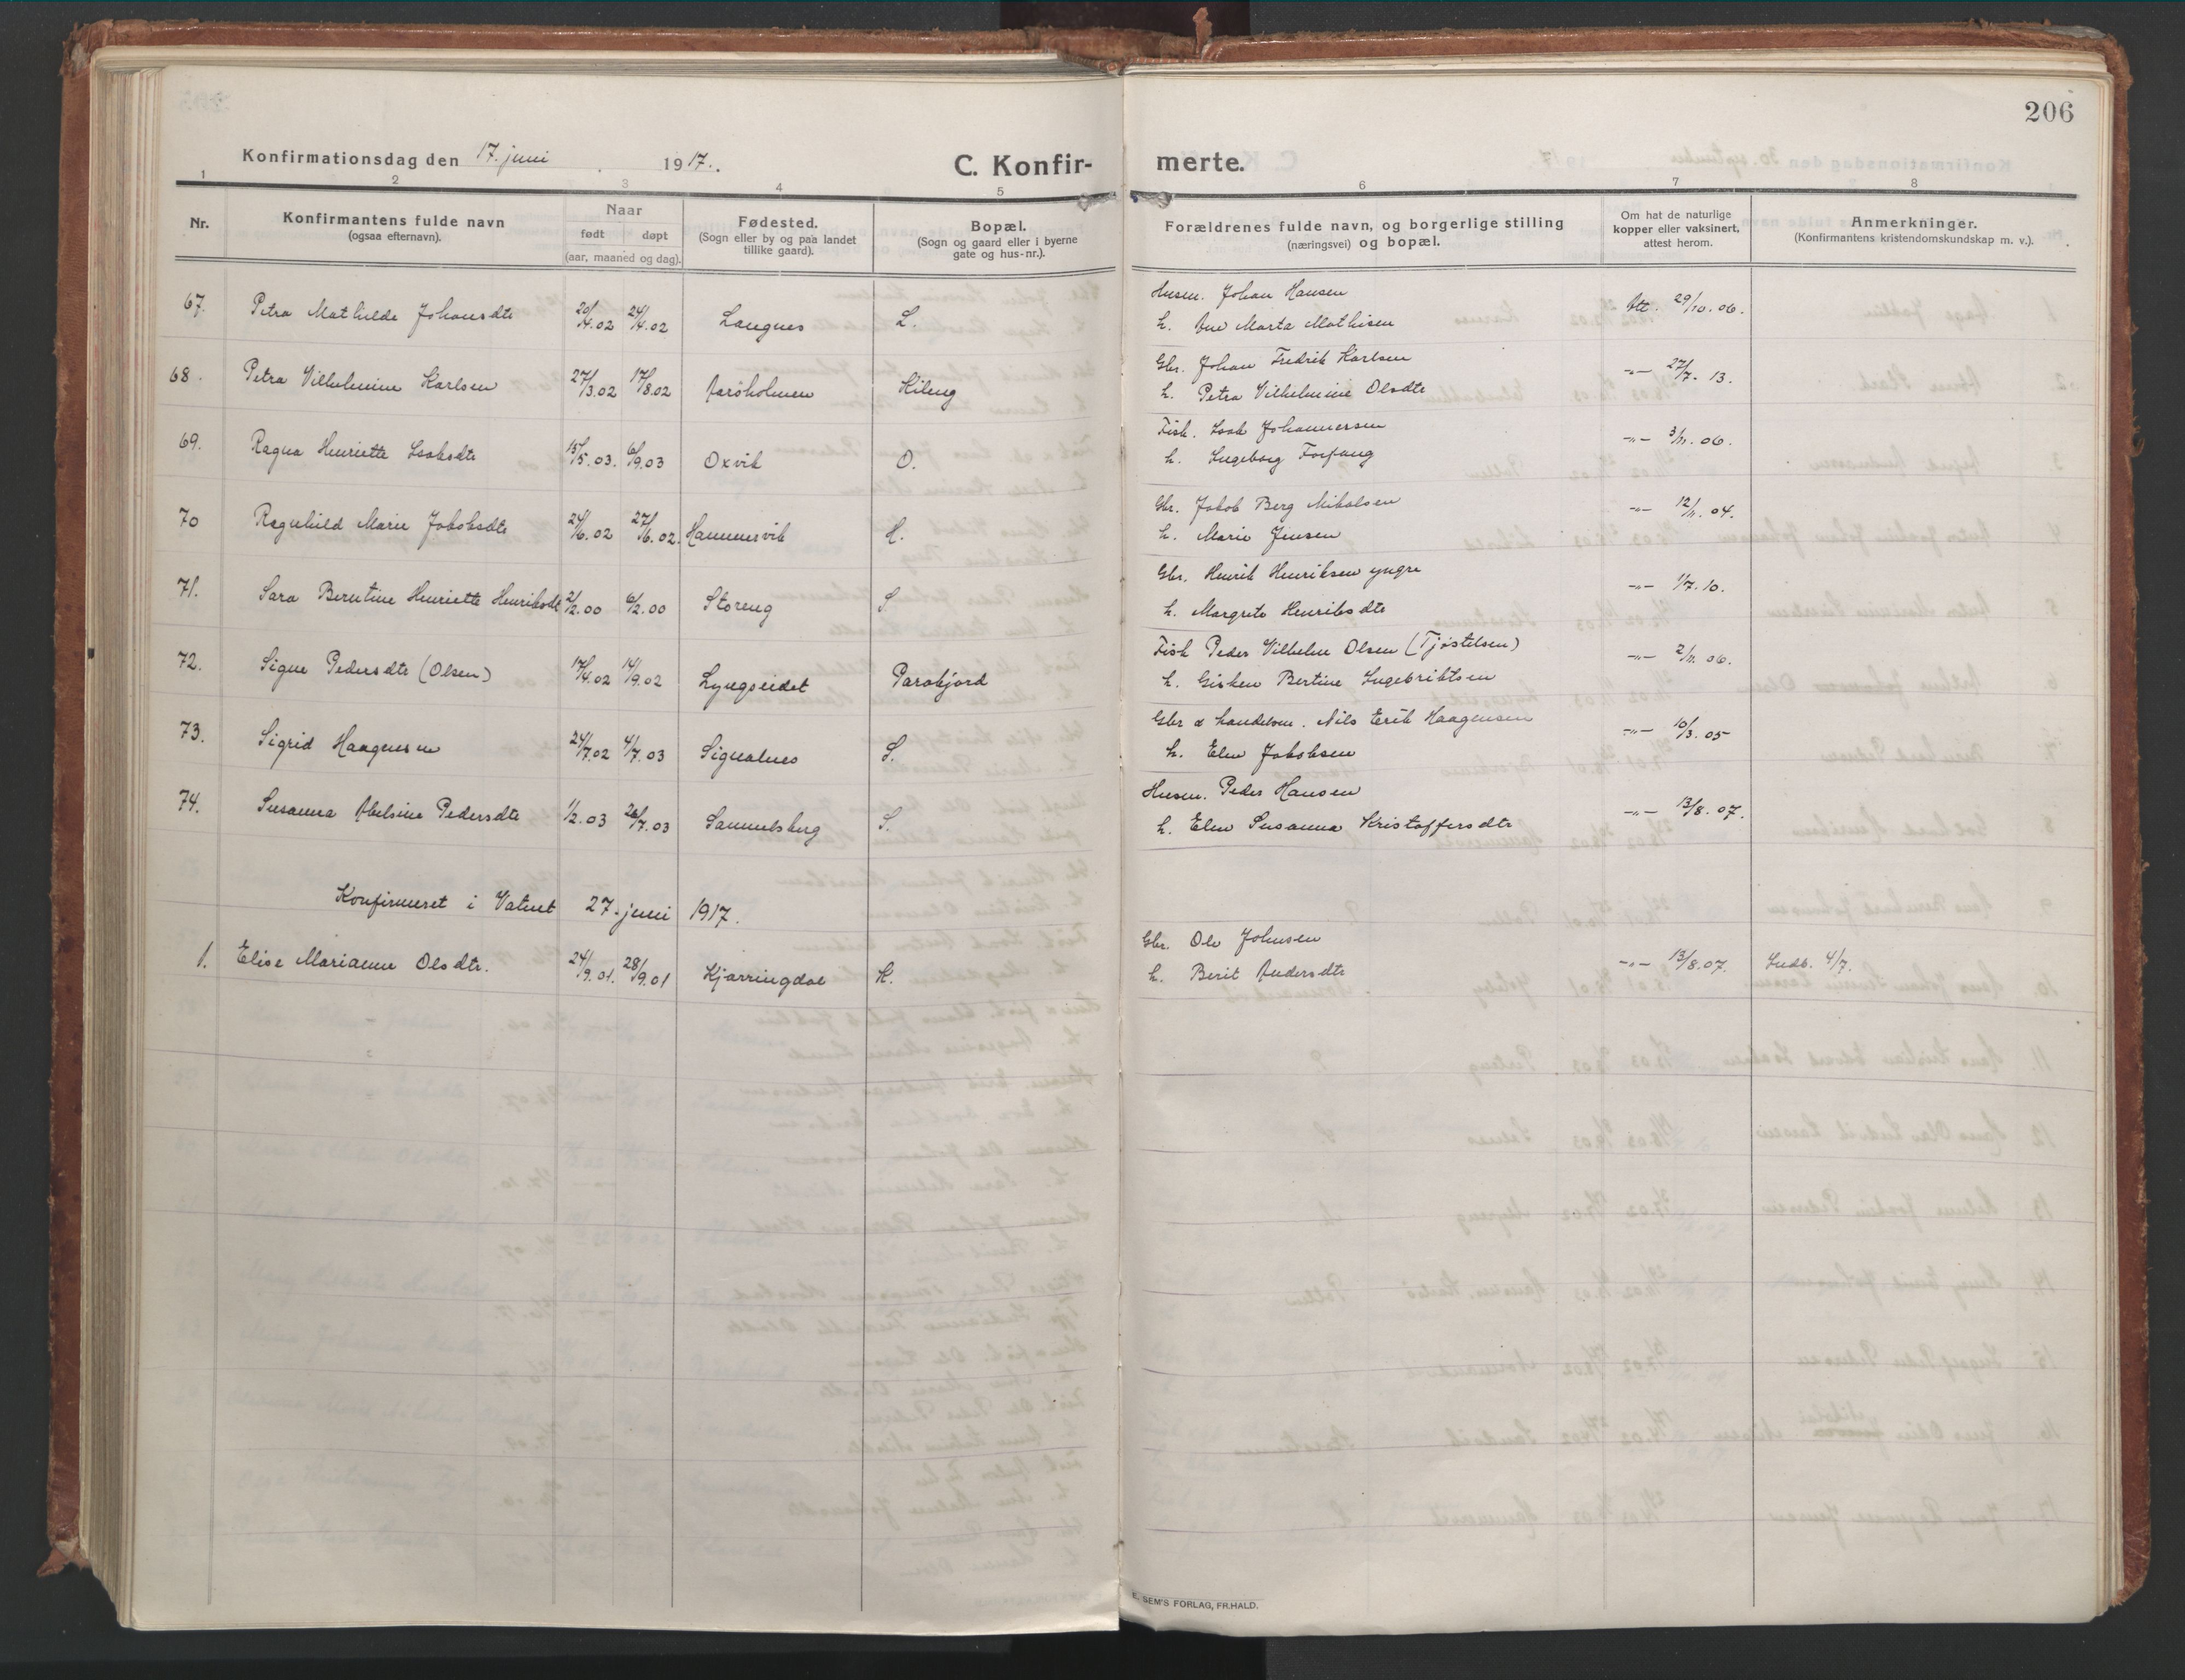 206
Konfirmationsdag den 17. juni 1917.
C. Konfirmerte.
1 2 3 4 5 6 7 8
Nr.
Konfirmantens fulde navn
(ogsaa efternavn).
Naar
født døpt
(aar, maaned og dag).
Fødested.
(Sogn eller by og paa landet
tillike gaard).
Bopæl.
(Sogn og gaard eller i byerne
gate og hus-nr.).
Forældrenes fulde navn, og borgerlige stilling
(næringsvei) og bopæl.
Om hat de naturlige
kopper eller vaksinert,
attest herom.
Anmerkninger.
(Konfirmantens kristendomskundskap m. v.).
67. Petra Mathilde Johansdtr 20/4.02 24/4.02 Langnes L. Husm. Johan Hansen Att. 29/10.06.
h. Ane Marta Mathisen
68. Petra Vilhelmine Karlsen 27/3.02 17/8.02 Aarøholmen Kileng Gbr. Johan Fredrik Karlsen -"- 27/7.13.
h. Petra Vilhelmine Olsdtr
69. Ragna Henriette Isaksdtr 15/5.03. 6/9.03 Oxvik O. Fisk. Isak Johannersen -"- 3/11.06.
h. Ingeborg Forfang
70 Ragnhild Marie Jakobsdtr 24/6.02 27/6.02. Hammervik H. Gbr. Jakob Berg Mikalsen -"- 12/11.04.
h. Marie Jensen
71. Sara Berntine Henriette Henriksdtr 2/2.00 6/2.00 Storeng S Gbr. Henrik Henriksen yngre -"- 1/7.10.
h. Margrete Henriksdtr
72. Signe Pedersdtr (Olsen) 17/4.02 14/9.02 Lyngseidet Parakjord Fisk Peder Vilhelm Olsen (Tjøstelsen) -"- 2/11.06.
h. Gisken Bertine Ingebriktsen
73. Sigrid Haagensen 24/7.02 4/7.03 Signalnes S. Gbr & handelsm. Nils Erik Haagensen -"- 10/3.05
h. Elen Jakobsen
74. Susanna Abelsine Pedersdtr 1/2.03 26/7.03 Samuelsberg S. Husm. Peder Hansen -"- 13/8.07.
h. Elen Susanna Kristoffersdtr
Konfirmeret i Vatnet 27. juni 1917.
1. Elise Marianne Olsdtr. 24/9.01. 28/9.01 Kjærringdal K. Gbr. Ole Johnsen -"- 13/8.07. Indb. 4/7.
h. Berit Andersdtr
E. SEM'S FORLAG, FR.HALD.